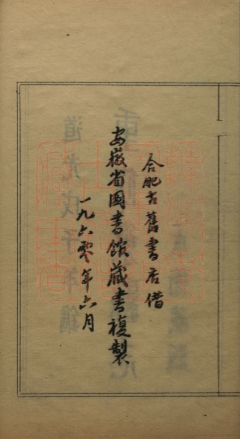 合肥古舊書店借
安徽省图書館藏書複製
一九六零年六月